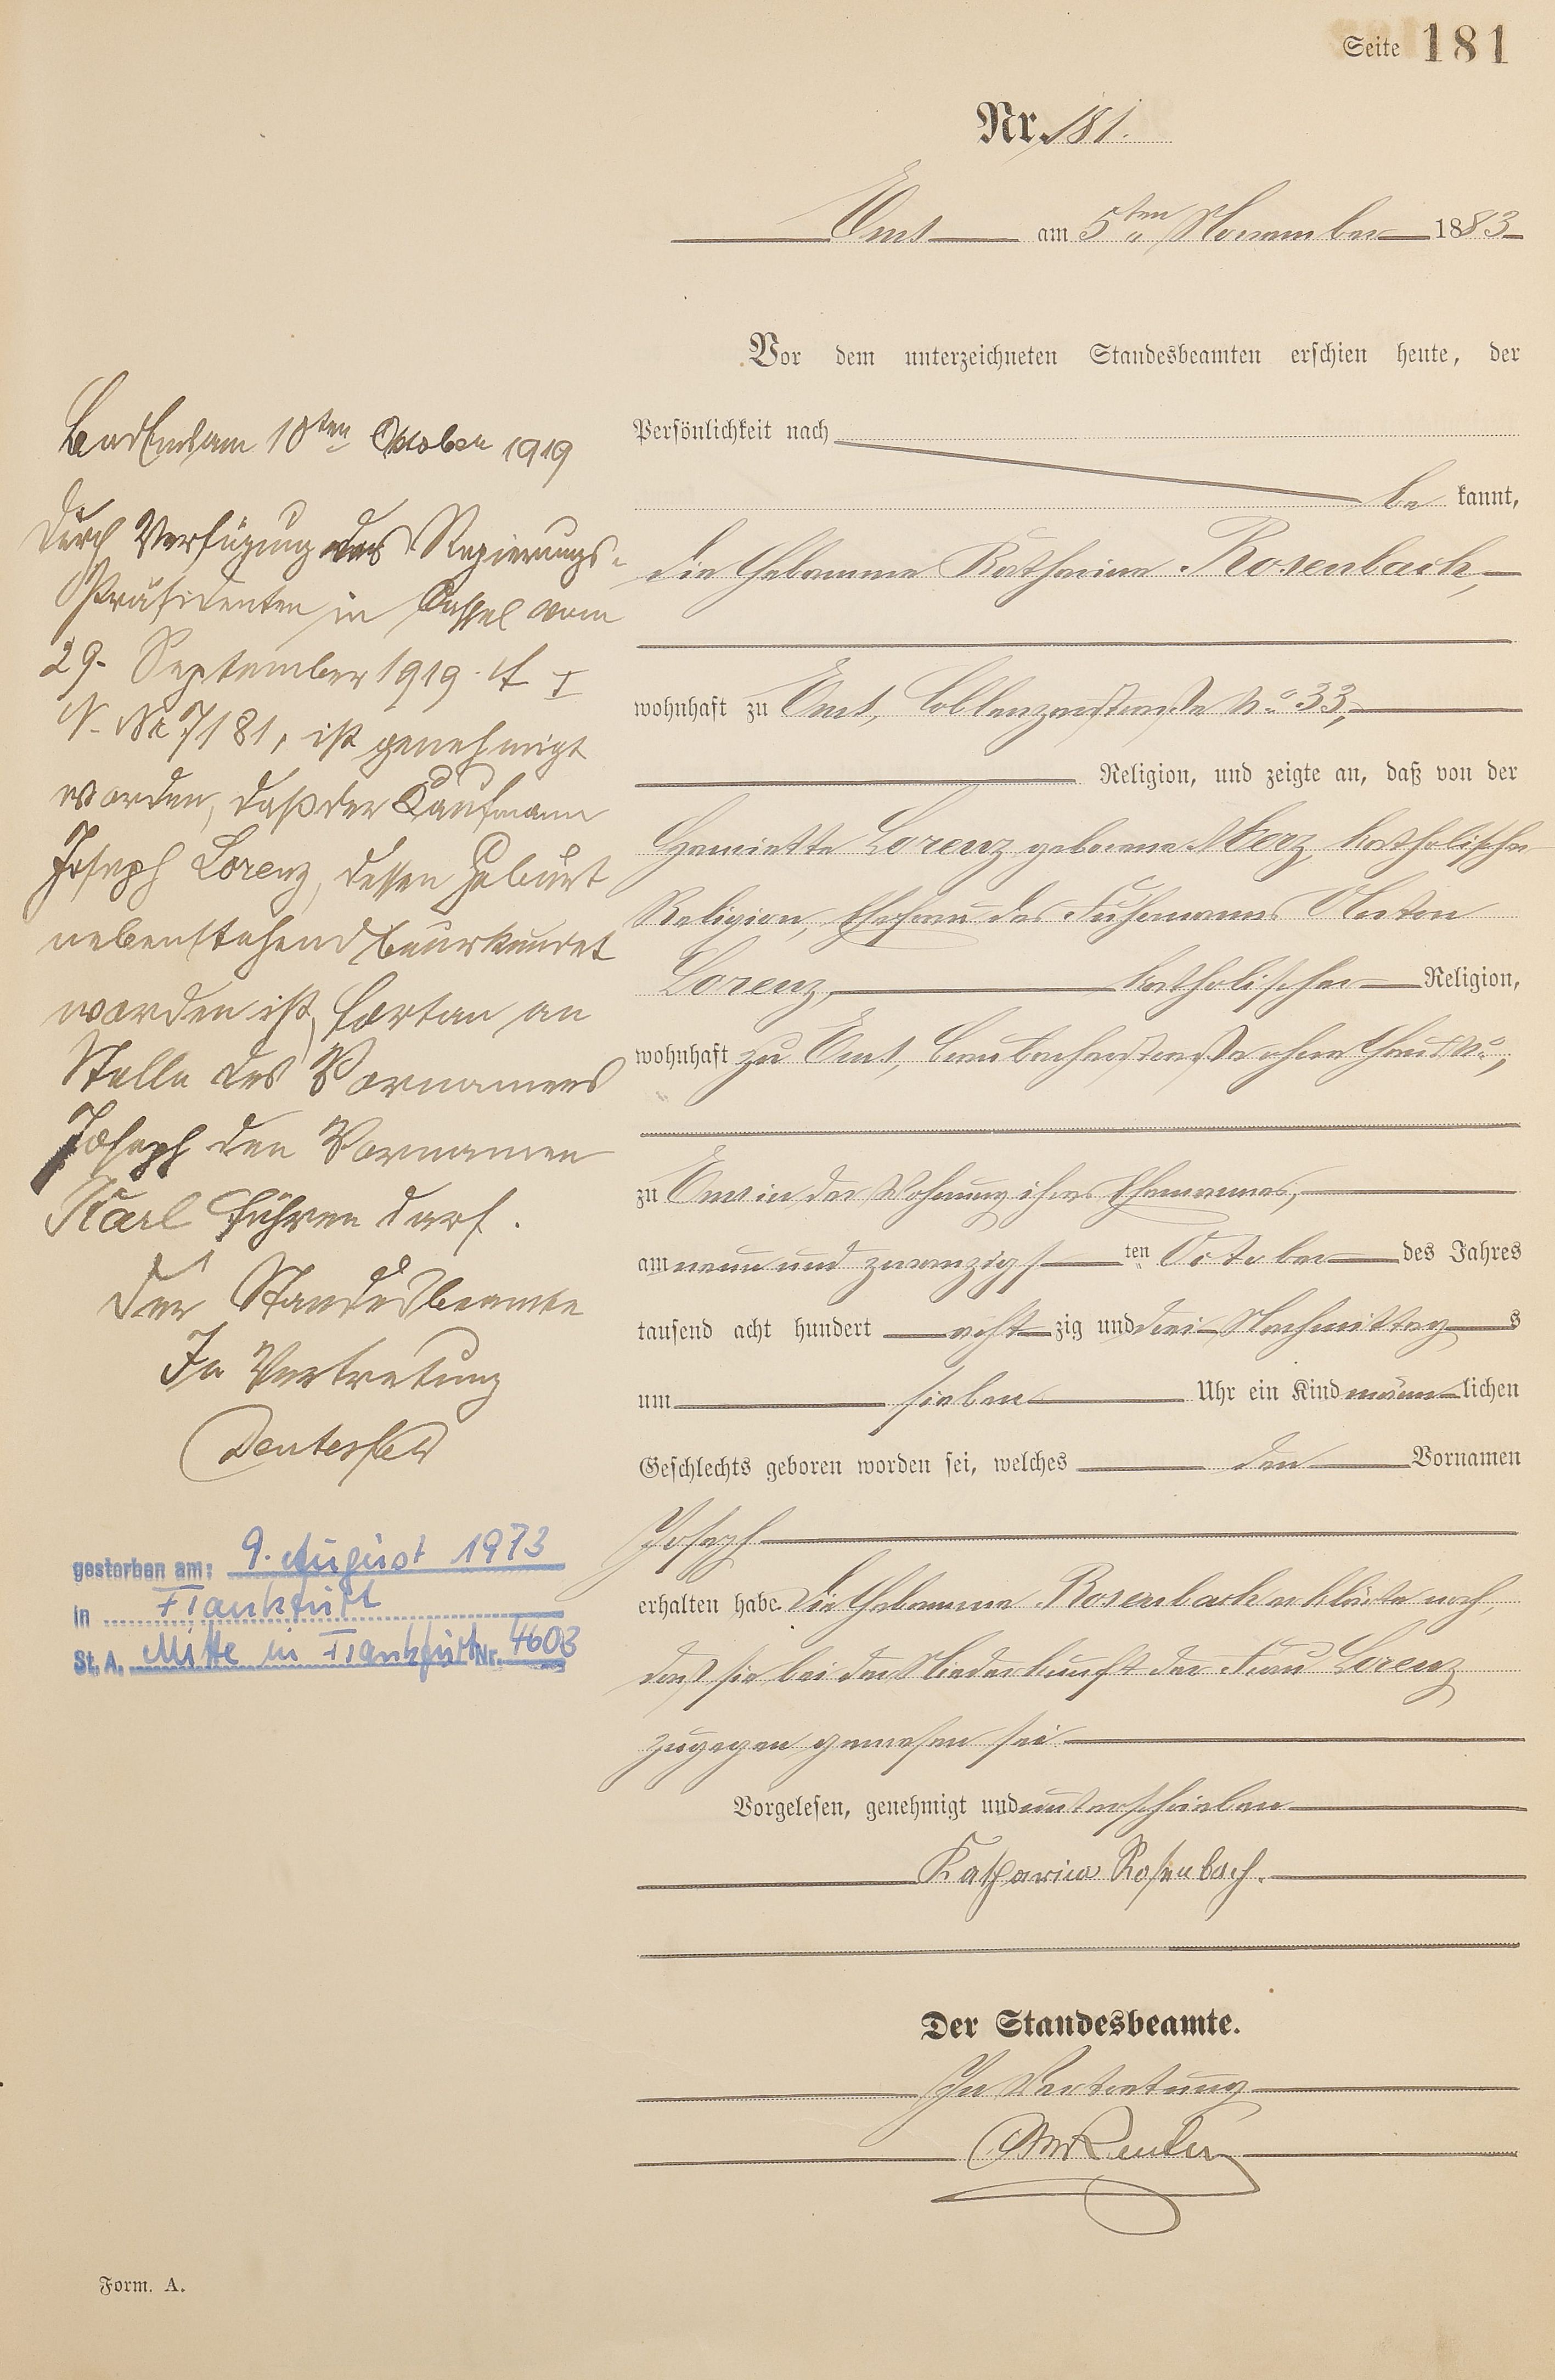 Seite 181
Nr. 181.
Ems am 5ten November 1883
Vor dem unterzeichneten Standesbeamten erschien heute, der
Persönlichkeit nach
be kannt,
die Hebamme Katharina Rosenbach,
wohnhaft zu Ems, Coblenzerstraße No 33,
Religion, und zeigte an, daß von der
Henriette Lorenz geborene Merz, katholischer
Religion, Ehefrau des Fuhrmanns Anton
Lorenz, katholischer Religion,
wohnhaft zu Ems, Braubacherstraße ohne Haus No,
zu Ems in der Wohnung ihres Ehemannes,
am neun und zwanzigsten October des Jahres
tausend acht hundert acht zig und drei Nachmittags
um sieben Uhr ein Kind männlichen
Geschlechts geboren worden sei, welches den Vornamen
Joseph
erhalten habe. Die Hebamme Rosenbach erklärte noch,
daß sie bei der Niederkunft der Frau Lorenz
zugegen gewesen sei
Vorgelesen, genehmigt und unterschrieben
Katharina Rosenbach.
Der Standesbeamte.
In Vertretung
Bad Ems am 10ten Oktober 1919
Durch Verfügung des Regierungs-
Präsidenten in Cassel vom
29. September 1919 A I
N. No 7181, ist genehmigt
worden, daß der Kaufmann
Joseph Lorenz, dessen Geburt
nebenstehend beurkundet
worden ist, fortan an
Stelle des Vornamens
Joseph den Vornamen
Karl führen darf.
Der Standesbeamte
In Vertretung
gestorben am: 9. August 1973
in Frankfurt
St. A. Mitte in Frankfurt Nr. 4603
Form. A.